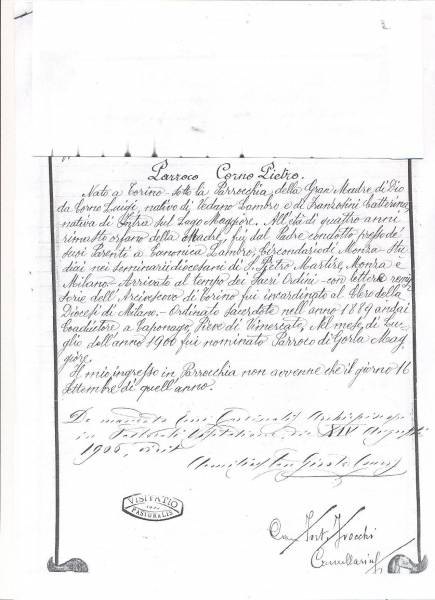 Parroco Corno Pietro.
Nato a Torino sotto la Parrocchia della Gran Madre di Dio
da Corno Luigi, nativo di Vedano Lambro e di Franzosini Catterina
nativa di Intra sul Lago Maggiore. All'età di quattro anni
rimasto orfano della Madre, fui dal Padre condotto presso de'
suoi Parenti a Canonica Lambro, Circondario di Monza. Stu
diai nei seminarii diocesani di S. Pietro Martire, Monza e
Milano. Arrivato al tempo dei Sacri Ordini con lettere remis
sorie dell'Arcivescovo di Torino fui incardinato al Clero della
Diocesi di Milano. Ordinato Sacerdote nell'anno 1889 andai
Coadiutore a Caponago, Pieve di Vimercate. Nel mese di Lu
glio dell'anno 1900 fui nominato Parroco di Gorla Mag
giore.
Il mio ingresso in Parrocchia non avvenne che il giorno 16
Settembre di quell'anno.
De mandato Cardinalis Archiepiscopi
in Pastorali Visitatione die XIV Augusti
1906,
VISITATIO
PASTORALIS